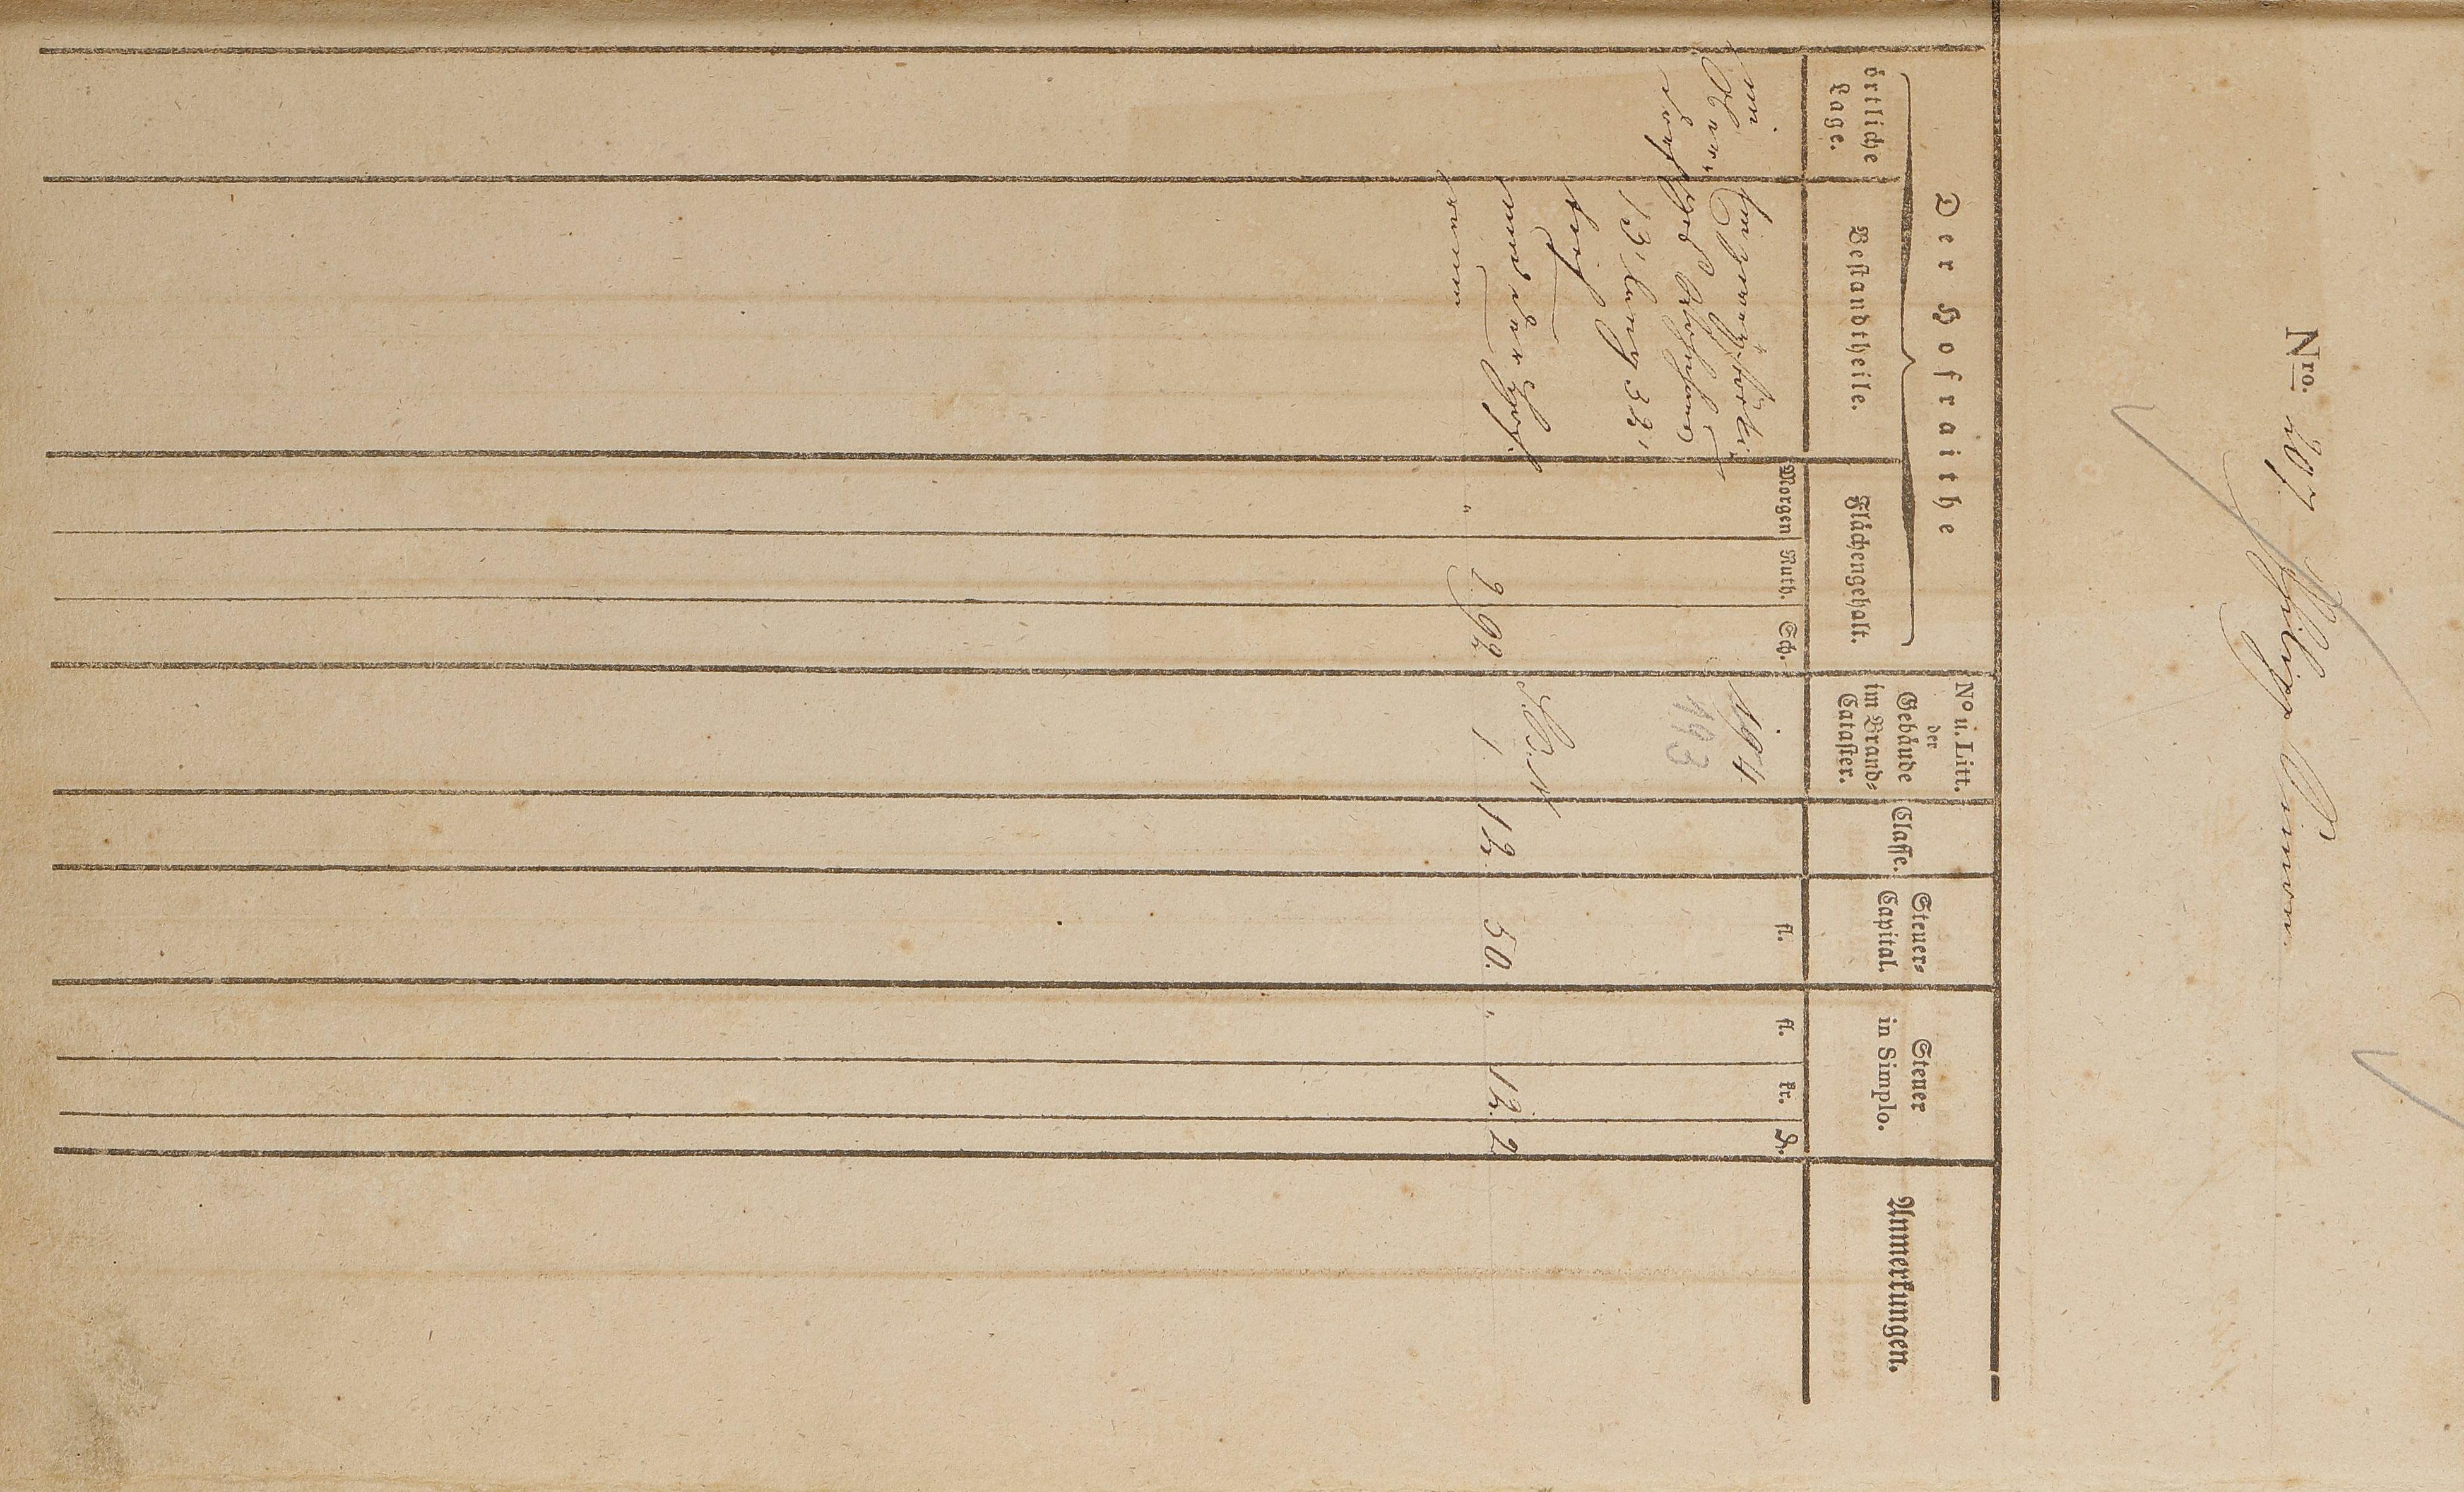 Nro. 207. Philipp Simon
Der Hofraithe
örtliche Lage.
Bestandtheile.
Flächengehalt.
Morgen Ruth. Sch.
No u. Litt. der Gebäude im Brand-Cataster.
Classe.
Steuer-Capital.
fl.
Steuer in Simplo.
fl. kr. H.
Anmerkungen.
im
dorf
Ein einstöcki-
ges
13' lang 32'
tief
und der Hof-
raum
" 2. 92.
194
193
12.
50.
" 12. 2